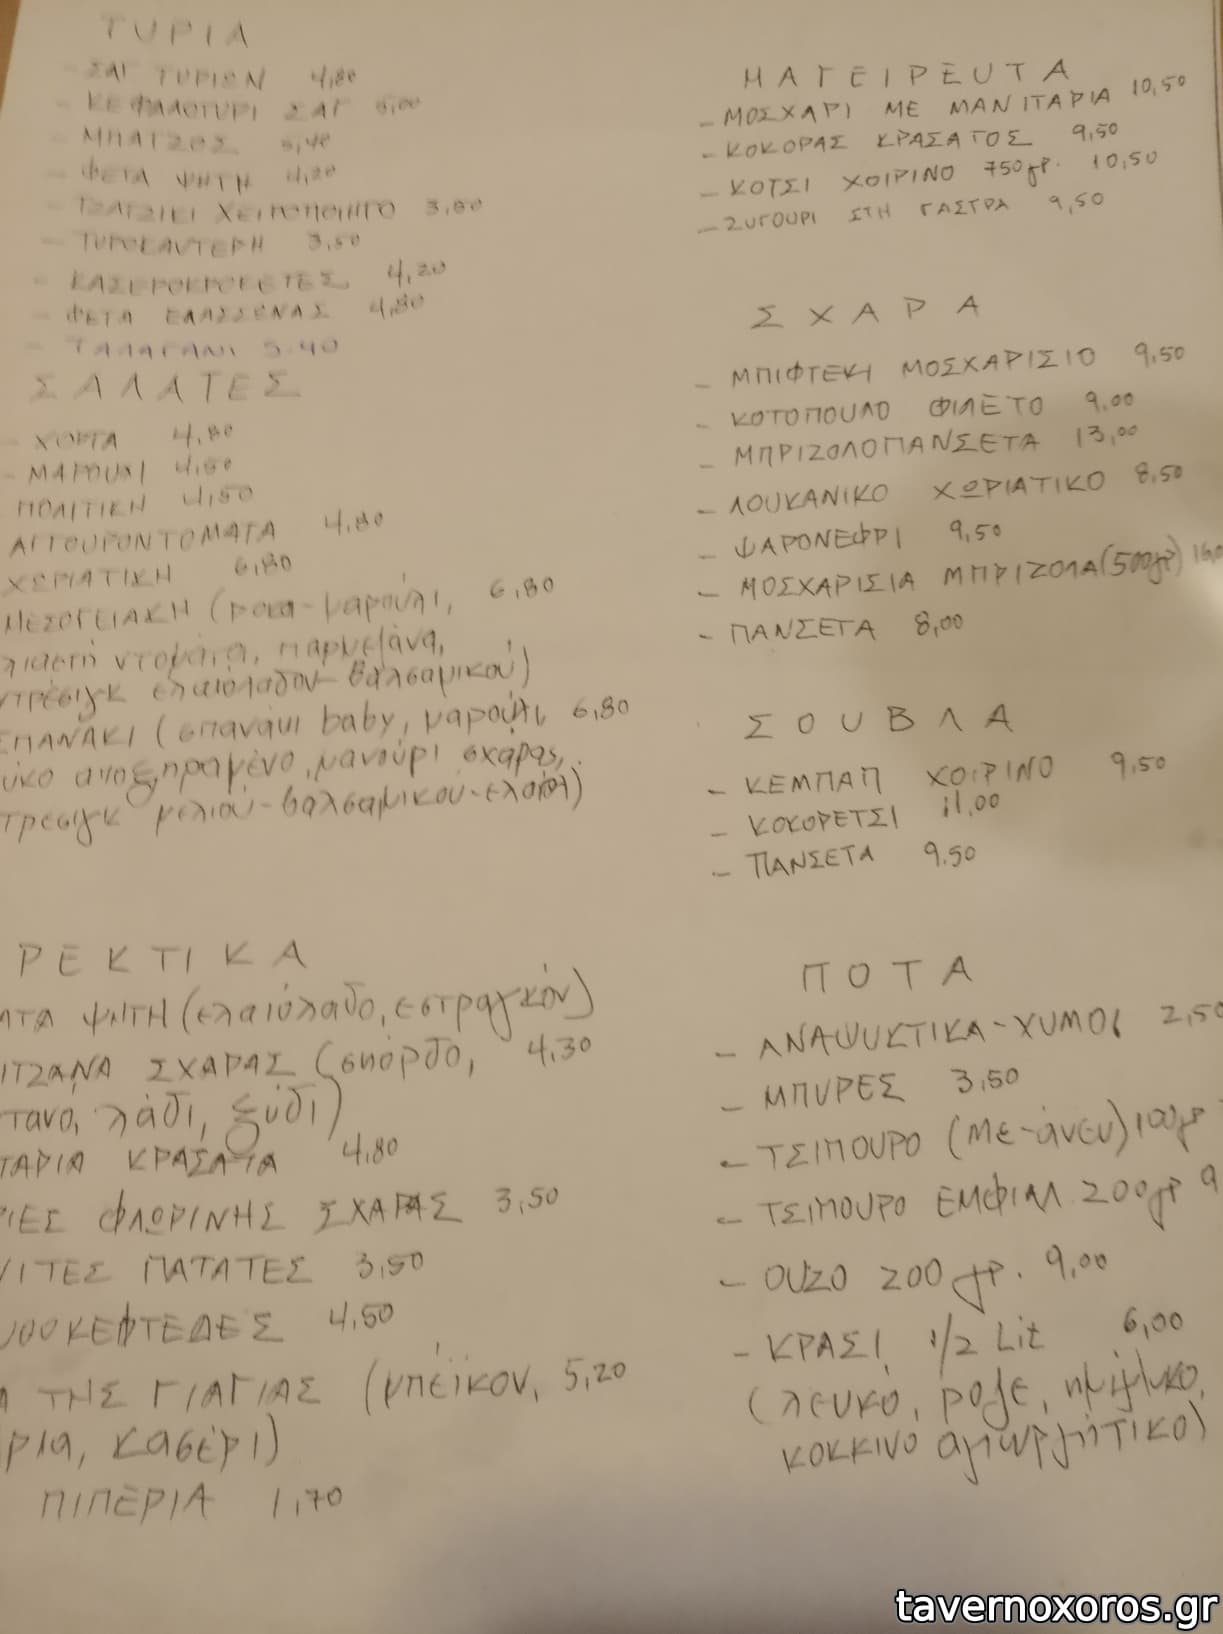 ΤΥΡΙΑ
- ΣΑΓ ΤΥΡΙΩΝ 4,80
- ΚΕΦΑΛΟΤΥΡΙ ΣΑΓ 5,00
- ΜΠΑΤΖΟΣ 5,40
- ΦΕΤΑ ΨΗΤΗ 4,20
- ΤΖΑΤΖΙΚΙ ΧΕΙΡΟΠΟΙΗΤΟ 3,80
- ΤΥΡΟΚΑΥΤΕΡΗ 3,50
- ΚΑΣΕΡΟΚΡΟΚΕΤΕΣ 4,20
- ΦΕΤΑ ΕΛΑΣΣΩΝΑΣ 4,80
- ΤΑΛΑΓΑΝΙ 5.40
ΣΑΛΑΤΕΣ
- ΧΟΡΤΑ 4,80
- ΜΑΡΟΥΛΙ 4,50
ΠΟΛΙΤΙΚΗ 4,50
ΑΓΓΟΥΡΟΝΤΟΜΑΤΑ 4,80
ΧΩΡΙΑΤΙΚΗ 6,80
ΜΕΣΟΓΕΙΑΚΗ (ροκα-μαρούλι, 6,80
λιαστή ντομάτα, παρμεζάνα,
ντρέσιγκ ελαιόλαδου-βαλσαμικού)
ΣΠΑΝΑΚΙ (σπανάκι baby, μαρούλι, 6,80
σύκο αποξηραμένο, μανούρι σχάρας,
τρεσιγκ μελιού-βαλσαμικού-ελαιολ)
ΡΕΚΤΙΚΑ
ΑΤΑ ΨΗΤΗ (ελαιόλαδο, εστραγκόν)
ΙΤΖΑΝΑ ΣΧΑΡΑΣ (σκόρδο, 4,30
τανο, λάδι, ξύδι)
ΤΑΡΙΑ ΚΡΑΣΑΤΑ 4,80
ΡΙΕΣ ΦΛΩΡΙΝΗΣ ΣΧΑΡΑΣ 3,50
ΙΤΕΣ ΠΑΤΑΤΕΣ 3,50
ΥΘΟΚΕΦΤΕΔΕΣ 4,50
Α ΤΗΣ ΓΙΑΓΙΑΣ (μπέϊκον, 5,20
ρια, κασέρι)
ΠΙΠΕΡΙΑ 1,70
ΜΑΓΕΙΡΕΥΤΑ
- ΜΟΣΧΑΡΙ ΜΕ ΜΑΝΙΤΑΡΙΑ 10,50
- ΚΟΚΟΡΑΣ ΚΡΑΣΑΤΟΣ 9,50
- ΚΟΤΣΙ ΧΟΙΡΙΝΟ 750γρ. 10,50
- ΖΥΓΟΥΡΙ ΣΤΗ ΓΑΣΤΡΑ 9,50
ΣΧΑΡΑ
- ΜΠΙΦΤΕΚΙ ΜΟΣΧΑΡΙΣΙΟ 9,50
- ΚΟΤΟΠΟΥΛΟ ΦΙΛΕΤΟ 9,00
- ΜΠΡΙΖΟΛΟΠΑΝΣΕΤΑ 13,00
- ΛΟΥΚΑΝΙΚΟ ΧΩΡΙΑΤΙΚΟ 8,50
- ΨΑΡΟΝΕΦΡΙ 9,50
- ΜΟΣΧΑΡΙΣΙΑ ΜΠΡΙΖΟΛΑ (500γρ)
- ΠΑΝΣΕΤΑ 8,00
ΣΟΥΒΛΑ
- ΚΕΜΠΑΠ ΧΟΙΡΙΝΟ 9,50
- ΚΟΚΟΡΕΤΣΙ 11,00
- ΠΑΝΣΕΤΑ 9.50
ΠΟΤΑ
- ΑΝΑΨΥΚΤΙΚΑ-ΧΥΜΟΙ 2,50
- ΜΠΥΡΕΣ 3,50
- ΤΣΙΠΟΥΡΟ (με-άνευ) 100γρ
- ΤΣΙΠΟΥΡΟ ΕΜΦΙΑΛ. 200γρ 9
- ΟΥΖΟ 200γρ. 9,00
- ΚΡΑΣΙ 1/2 Lit 6,00
(λευκό, ροζε, ημίγλυκο,
κοκκινο αγιωργήτικο)
tavernoxoros.gr